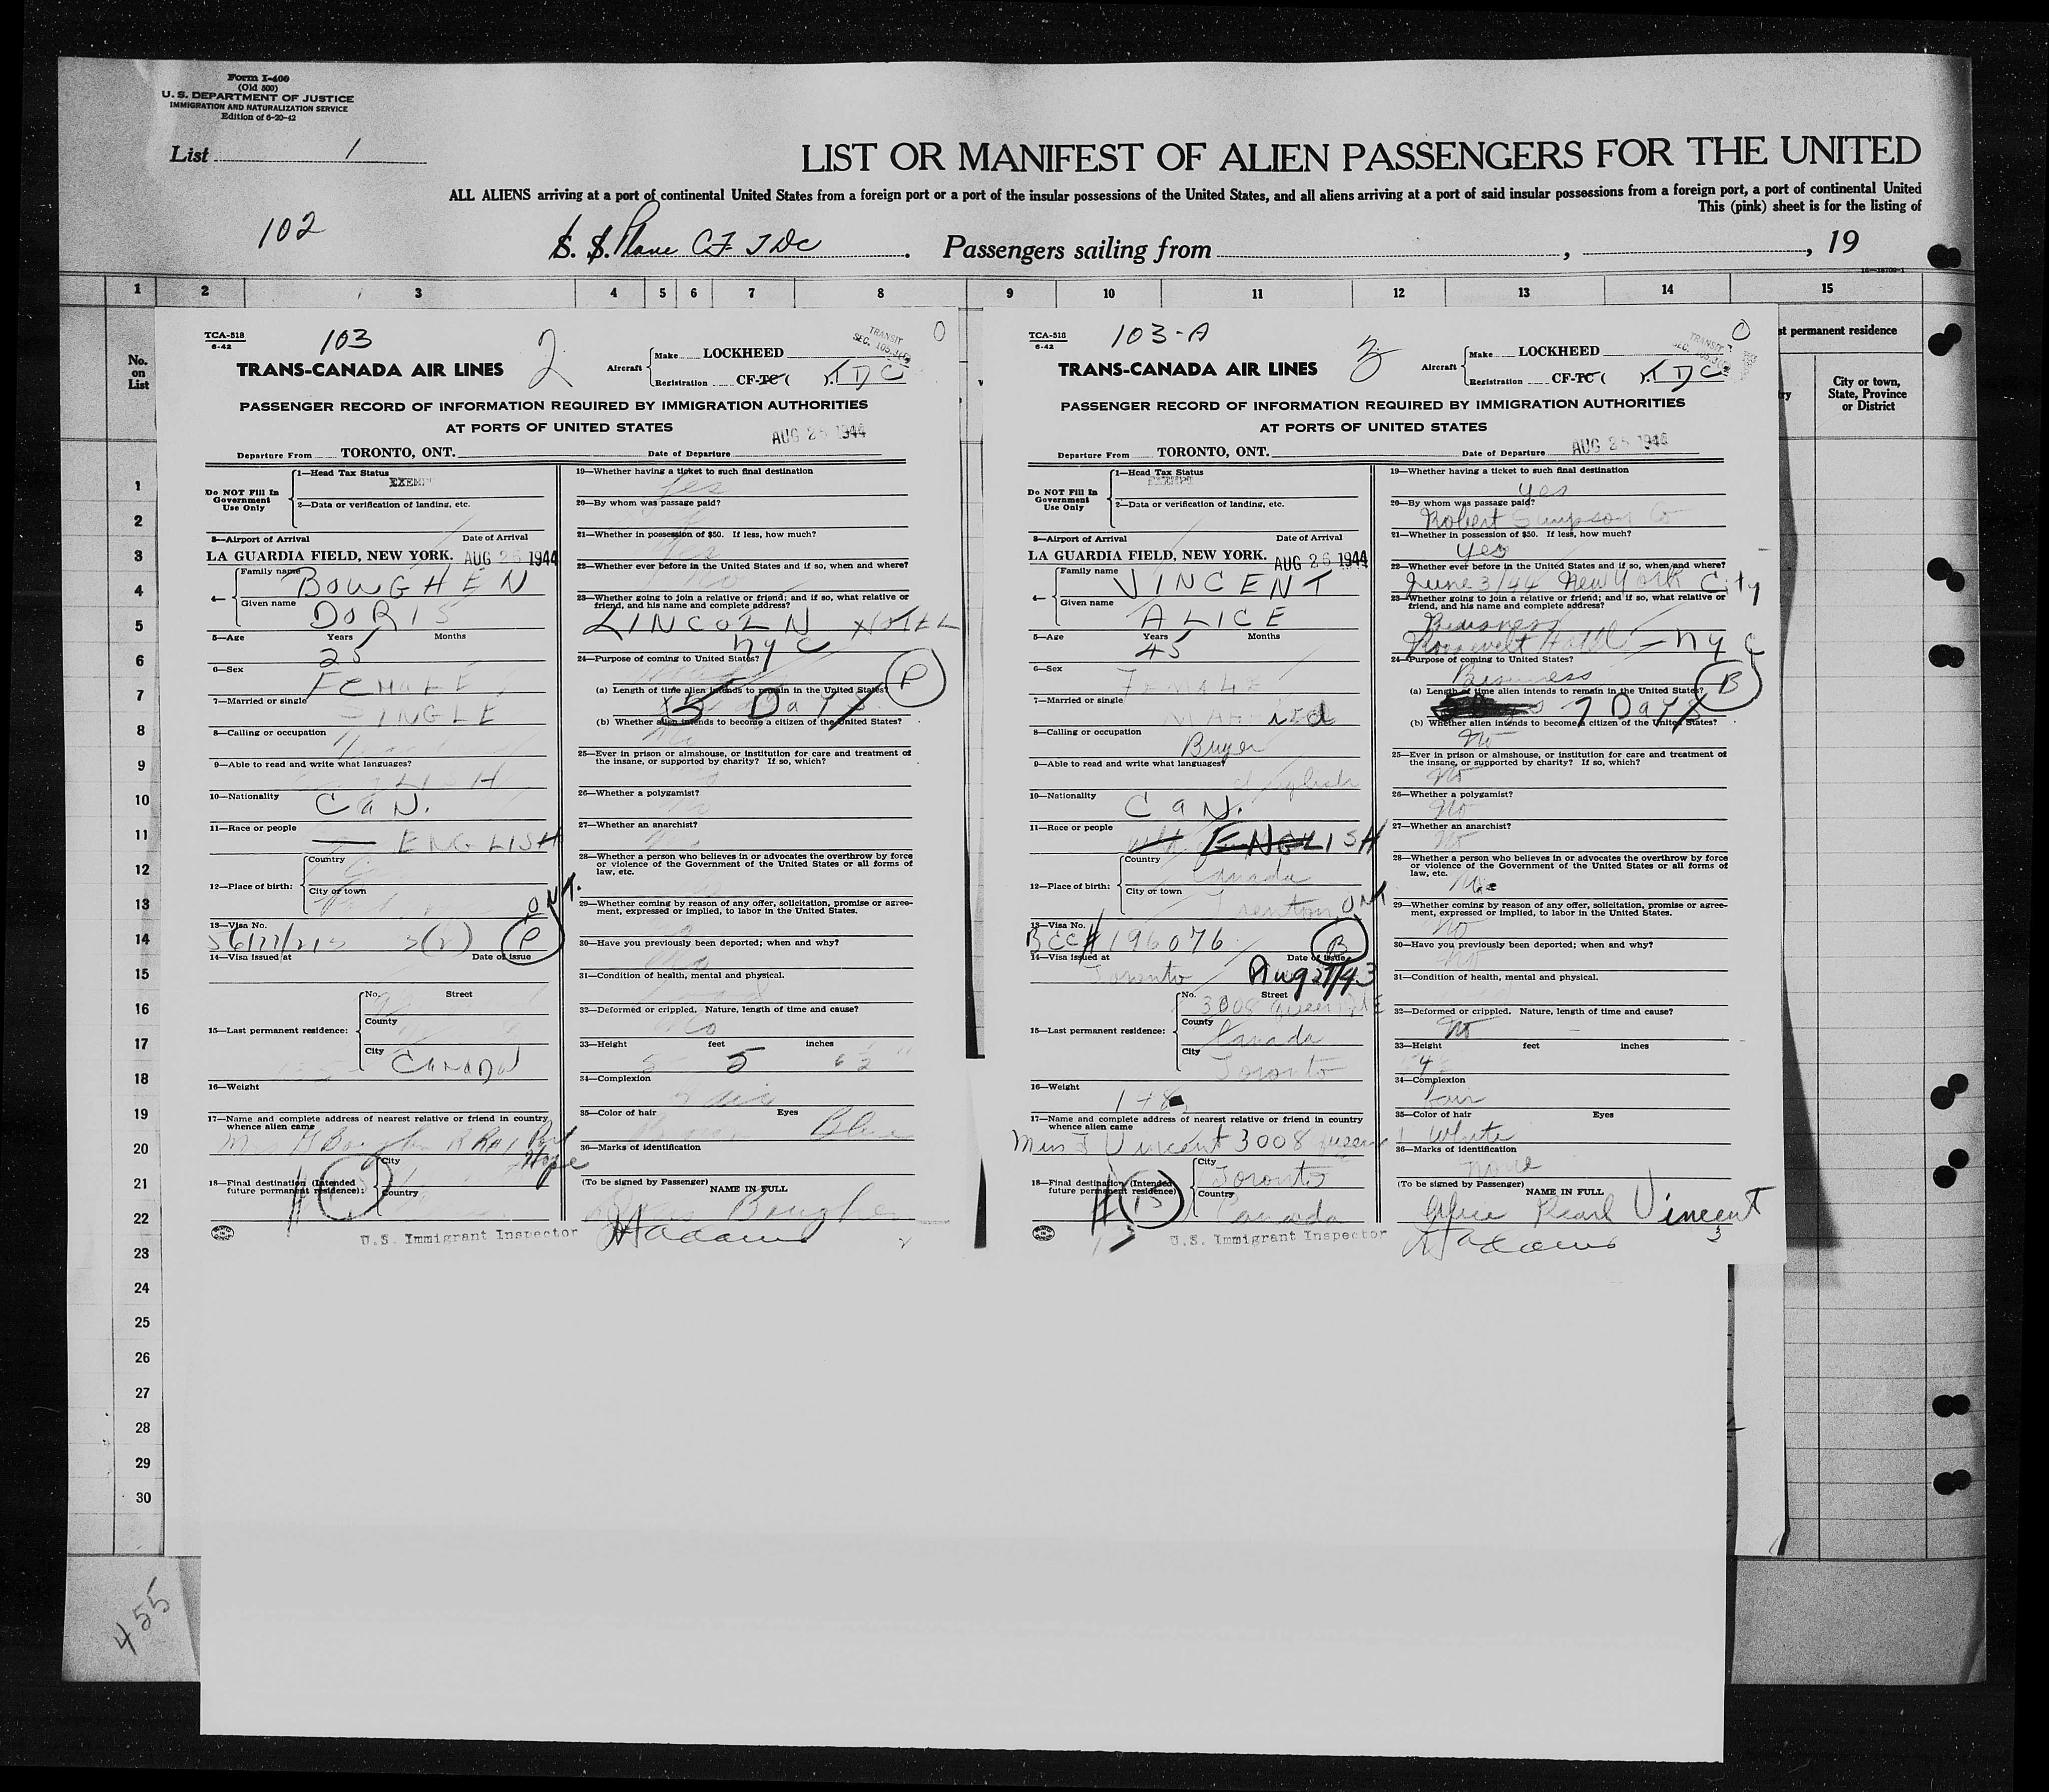 Form I-400
(Old 500)
U. S. DEPARTMENT OF JUSTICE
IMMIGRATION AND NATURALIZATION SERVICE
Edition of 6-20-42
List 1
LIST OR MANIFEST OF ALIEN PASSENGERS FOR THE UNITED
ALL ALIENS arriving at a port of continental United States from a foreign port or a port of the insular possessions of the United States, and all aliens arriving at a port of said insular possessions from a foreign port, a port of continental United
This (pink) sheet is for the listing of
102
S. S. Plane CF TDC. Passengers sailing from , , 19
1 2 3 4 5 6 7 8 9 10 11 12 13 14 15
No. on List
st permanent residence
City or town, State, Province or District
1
2
3
4
5
6
7
8
9
10
11
12
13
14
15
16
17
18
19
20
21
22
23
24
25
26
27
28
29
30
455
TCA-518
6-42
103
2
0
TRANSIT
TRANS-CANADA AIR LINES
Aircraft
Make LOCKHEED
Registration CF-TC ( ). TDC
PASSENGER RECORD OF INFORMATION REQUIRED BY IMMIGRATION AUTHORITIES
AT PORTS OF UNITED STATES
AUG 25 1944
Departure From TORONTO, ONT. Date of Departure
Do NOT Fill In Government Use Only
1—Head Tax Status
EXEMPT
2—Data or verification of landing, etc.
3—Airport of Arrival Date of Arrival
LA GUARDIA FIELD, NEW YORK. AUG 26 1944
4— Family name BOUGHEN
Given name DORIS
5—Age Years Months
25
6—Sex
FEMALE
7—Married or single
SINGLE
8—Calling or occupation
9—Able to read and write what languages?
10—Nationality
CAN.
11—Race or people
ENGLISH
12—Place of birth: Country
City or town
ONT.
13—Visa No.
P
14—Visa issued at Date of issue
15—Last permanent residence: No. Street
County
City
CANADA
16—Weight
17—Name and complete address of nearest relative or friend in country whence alien came
Boughen RR#1 Port Hope
18—Final destination (Intended future permanent residence): City
Country
U.S. Immigrant Inspector
19—Whether having a ticket to such final destination
Yes
20—By whom was passage paid?
21—Whether in possession of $50. If less, how much?
Yes
22—Whether ever before in the United States and if so, when and where?
No
23—Whether going to join a relative or friend; and if so, what relative or friend, and his name and complete address?
LINCOLN HOTEL
NYC
24—Purpose of coming to United States?
P
(a) Length of time alien intends to remain in the United States?
5 Days
(b) Whether alien intends to become a citizen of the United States?
No
25—Ever in prison or almshouse, or institution for care and treatment of the insane, or supported by charity? If so, which?
26—Whether a polygamist?
27—Whether an anarchist?
28—Whether a person who believes in or advocates the overthrow by force or violence of the Government of the United States or all forms of law, etc.
29—Whether coming by reason of any offer, solicitation, promise or agreement, expressed or implied, to labor in the United States.
30—Have you previously been deported; when and why?
31—Condition of health, mental and physical.
32—Deformed or crippled. Nature, length of time and cause?
No
33—Height feet inches
5
34—Complexion
Fair
35—Color of hair Eyes
Blue
36—Marks of identification
(To be signed by Passenger) NAME IN FULL
Doris Boughen
Adams
TCA-518
6-42
103-A
3
0
TRANSIT
TRANS-CANADA AIR LINES
Aircraft
Make LOCKHEED
Registration CF-TC ( ). TDC
PASSENGER RECORD OF INFORMATION REQUIRED BY IMMIGRATION AUTHORITIES
AT PORTS OF UNITED STATES
AUG 25 1944
Departure From TORONTO, ONT. Date of Departure
Do NOT Fill In Government Use Only
1—Head Tax Status
EXEMPT
2—Data or verification of landing, etc.
3—Airport of Arrival Date of Arrival
LA GUARDIA FIELD, NEW YORK. AUG 26 1944
4— Family name VINCENT
Given name ALICE
5—Age Years Months
45
6—Sex
Female
7—Married or single
Married
8—Calling or occupation
Buyer
9—Able to read and write what languages?
English
10—Nationality
CAN.
11—Race or people
ENGLISH
12—Place of birth: Country
Canada
City or town
Trenton ONT
13—Visa No.
BCC# 196076 B
14—Visa issued at Date of issue
Toronto Aug 27/43
15—Last permanent residence: No. Street
3008 Queen St E
County
Canada
City
Toronto
16—Weight
17—Name and complete address of nearest relative or friend in country whence alien came
Vincent 3008 Queen
18—Final destination (Intended future permanent residence): City
Toronto
Country
Canada
13
U.S. Immigrant Inspector
19—Whether having a ticket to such final destination
yes
20—By whom was passage paid?
Robert Simpson Co
21—Whether in possession of $50. If less, how much?
yes
22—Whether ever before in the United States and if so, when and where?
June 3/44 New York City
23—Whether going to join a relative or friend; and if so, what relative or friend, and his name and complete address?
Business
Roosevelt Hotel - NYC
24—Purpose of coming to United States?
Business
B
(a) Length of time alien intends to remain in the United States?
7 Days
(b) Whether alien intends to become a citizen of the United States?
No
25—Ever in prison or almshouse, or institution for care and treatment of the insane, or supported by charity? If so, which?
No
26—Whether a polygamist?
No
27—Whether an anarchist?
No
28—Whether a person who believes in or advocates the overthrow by force or violence of the Government of the United States or all forms of law, etc.
No
29—Whether coming by reason of any offer, solicitation, promise or agreement, expressed or implied, to labor in the United States.
No
30—Have you previously been deported; when and why?
No
31—Condition of health, mental and physical.
32—Deformed or crippled. Nature, length of time and cause?
No
33—Height feet inches
34—Complexion
fair
35—Color of hair Eyes
White
36—Marks of identification
none
(To be signed by Passenger) NAME IN FULL
Alice Pearl Vincent
Adams
3